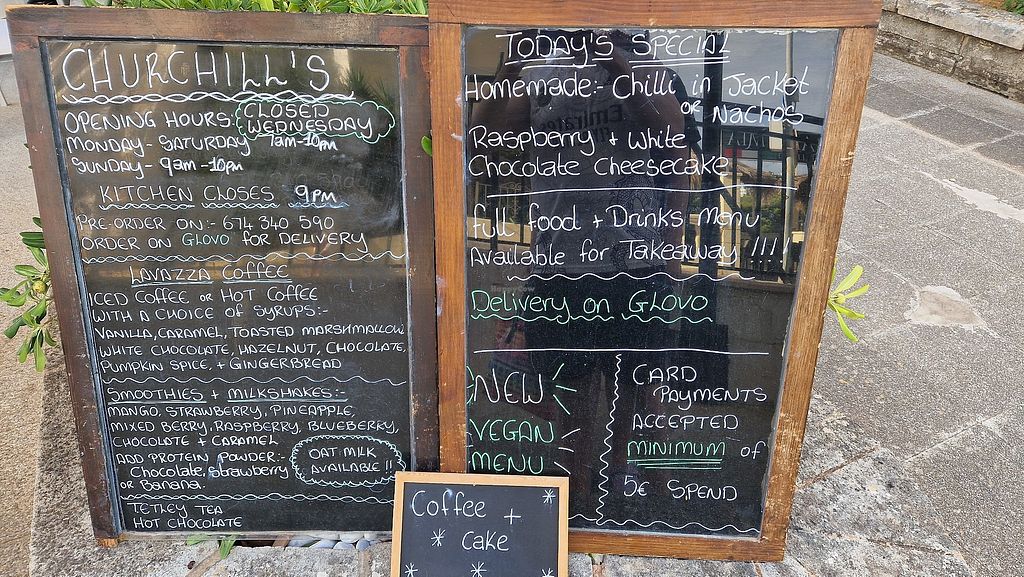 CHURCHILL'S
OPENING HOURS: CLOSED WEDNESDAY
MONDAY - SATURDAY 7am-10pm
SUNDAY - 9am-10pm
KITCHEN CLOSES 9pm
PRE-ORDER ON:- 674 340 590
ORDER ON GLOVO FOR DELIVERY
LAVAZZA COFFEE
ICED COFFEE OR HOT COFFEE
WITH A CHOICE OF SYRUPS:-
VANILLA, CARAMEL, TOASTED MARSHMALLOW
WHITE CHOCOLATE, HAZELNUT, CHOCOLATE,
PUMPKIN SPICE, + GINGERBREAD
SMOOTHIES + MILKSHAKES:-
MANGO, STRAWBERRY, PINEAPPLE,
MIXED BERRY, RASPBERRY, BLUEBERRY,
CHOCOLATE + CARAMEL
ADD PROTEIN POWDER:-
Chocolate, Strawberry
OR Banana.
OAT MILK
AVAILABLE!!
TETLEY TEA
HOT CHOCOLATE
TODAY'S SPECIAL
Homemade:- Chilli in Jacket
OR Nachos
Raspberry + White
Chocolate Cheesecake
Full food + Drinks Menu
Available for Takeaway !!!!
Delivery on GLOVO
NEW
VEGAN
MENU
CARD
PAYMENTS
ACCEPTED
MINIMUM of
5€ SPEND
Coffee +
Cake